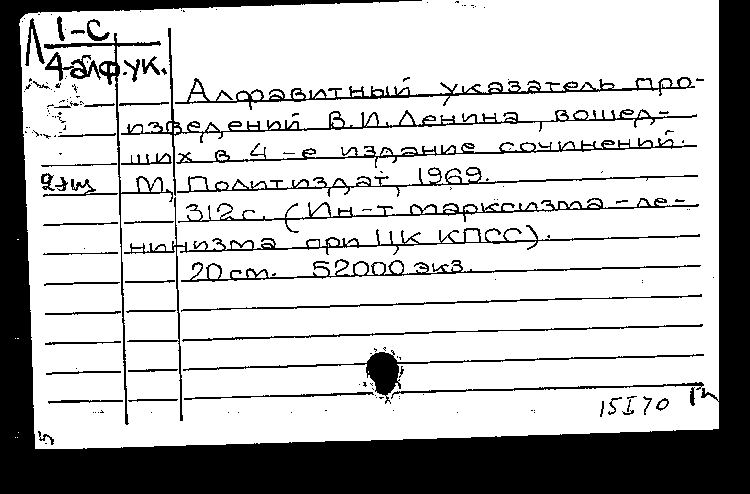 Л 1-С
4-алф.ук.
Алфавитный указатель про-
изведений В.И.Ленина, вошед-
ших в 4-е издание сочинений.
М., Политиздат, 1969.
312 с. (Ин-т марксизма-ле-
нинизма при ЦК КПСС).
20 см. 52000 экз.
15 I 70